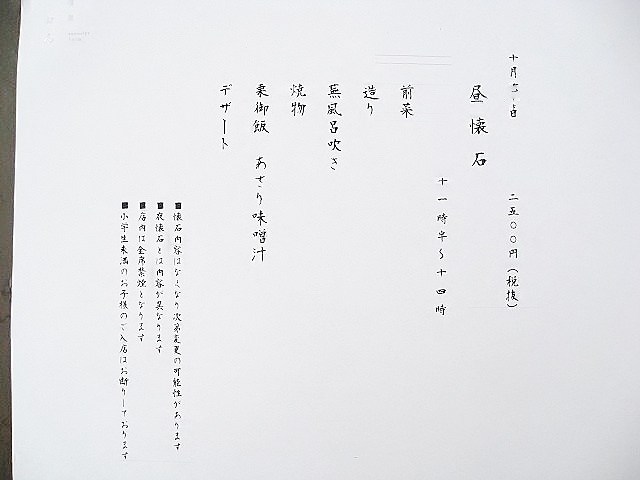 十月
二五〇〇円（税抜）
昼懐石
十一時半〜十四時
前菜
造り
蕪風呂吹き
焼物
栗御飯　あさり味噌汁
デザート
■懐石内容はなくなり次第変更の可能性があります
■夜懐石とは内容が異なります
■店内は全席禁煙となります
■小学生未満のお子様のご入店はお断りしております